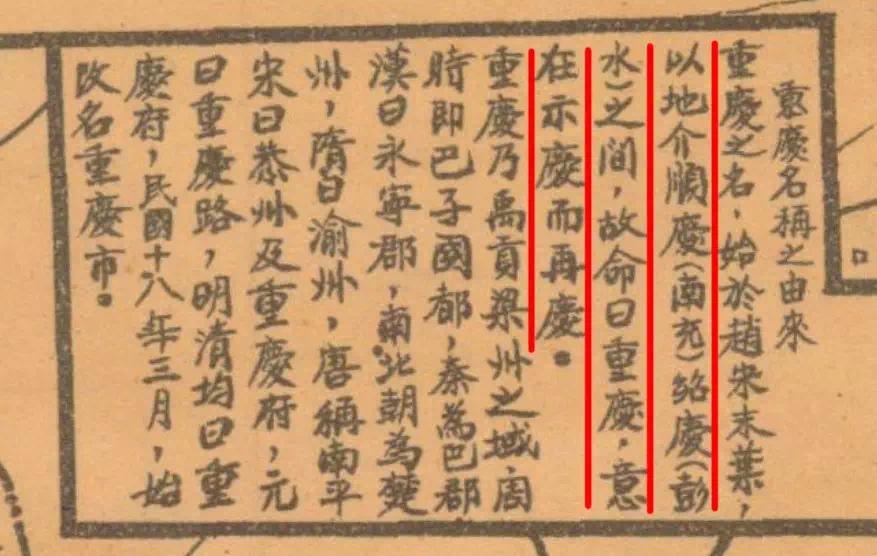 重慶名稱之由來
重慶之名，始於趙宋末葉，
以地介順慶（南充）紹慶（彭
水）之間，故命曰重慶，意
在示慶而再慶。
重慶乃禹貢梁州之域周
時即巴子國都，秦為巴郡
漢曰永寧郡，南北朝為楚
州，隋曰渝州，唐稱南平
宋曰恭州及重慶府，元
曰重慶路，明清均曰重
慶府，民國十八年三月，始
改名重慶市。